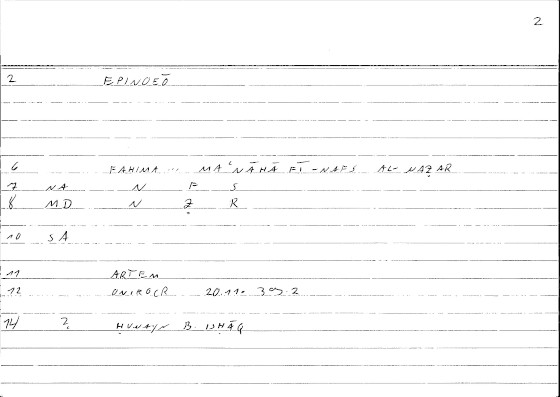 2
2 EPINOEŌ
6 FAHIMA ... MAʿNĀHĀ FĪ -NAFS AL- NAẒAR
7 NA N F S
8 MD N Ẓ R
10 SA
11 ARTEM
12 ONIROCR 20.11- 
14 ? ḤUNAYN B. ISḤĀQ